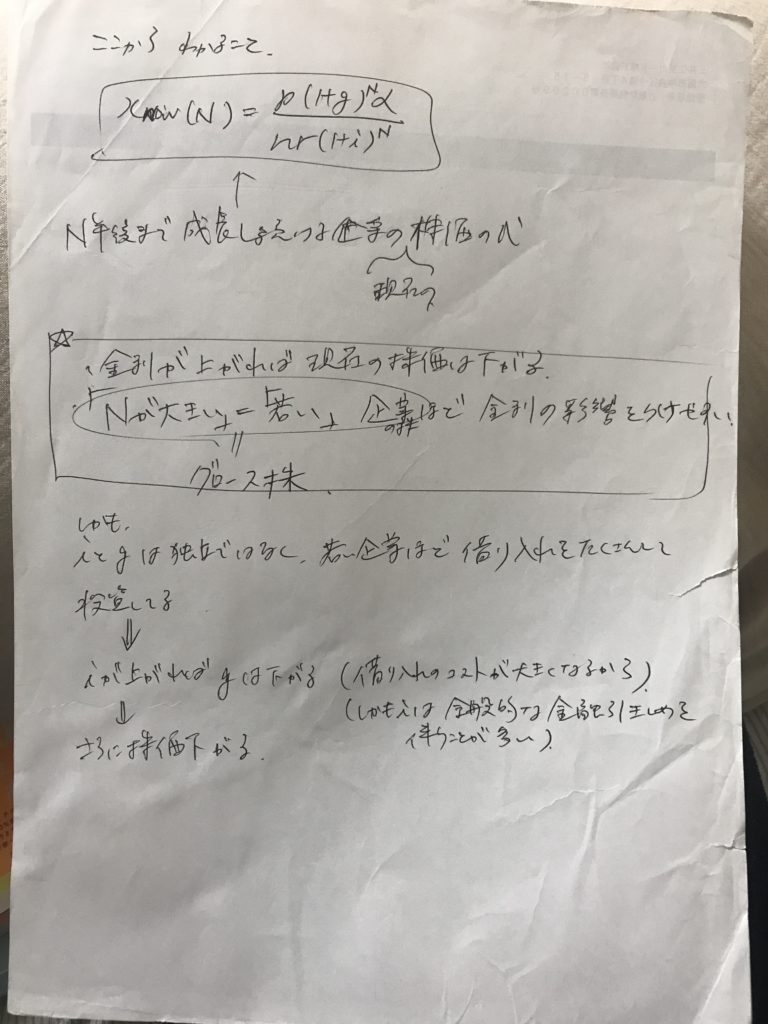 ここから わかること.
x_now(N) = p(1+g)^N α / nr(1+i)^N
↑
N年後まで 成長しきった企業の 株価の式
現在の
☆
・金利が上がれば 現在の株価は下がる.
・「Nが大きい」=「若い」 企業の株ほど 金利の影響をうけやすい.
グロース株.
しかも,
iとgは独立ではなく, 若い企業ほど 借り入れをたくさんして
投資してる
⇓
iが上がれば gは下がる (借り入れのコストが大きくなるから).
⇓ (しかもiは 全般的な 金融引きしめを
さらに株価下がる. 伴うことが多い).